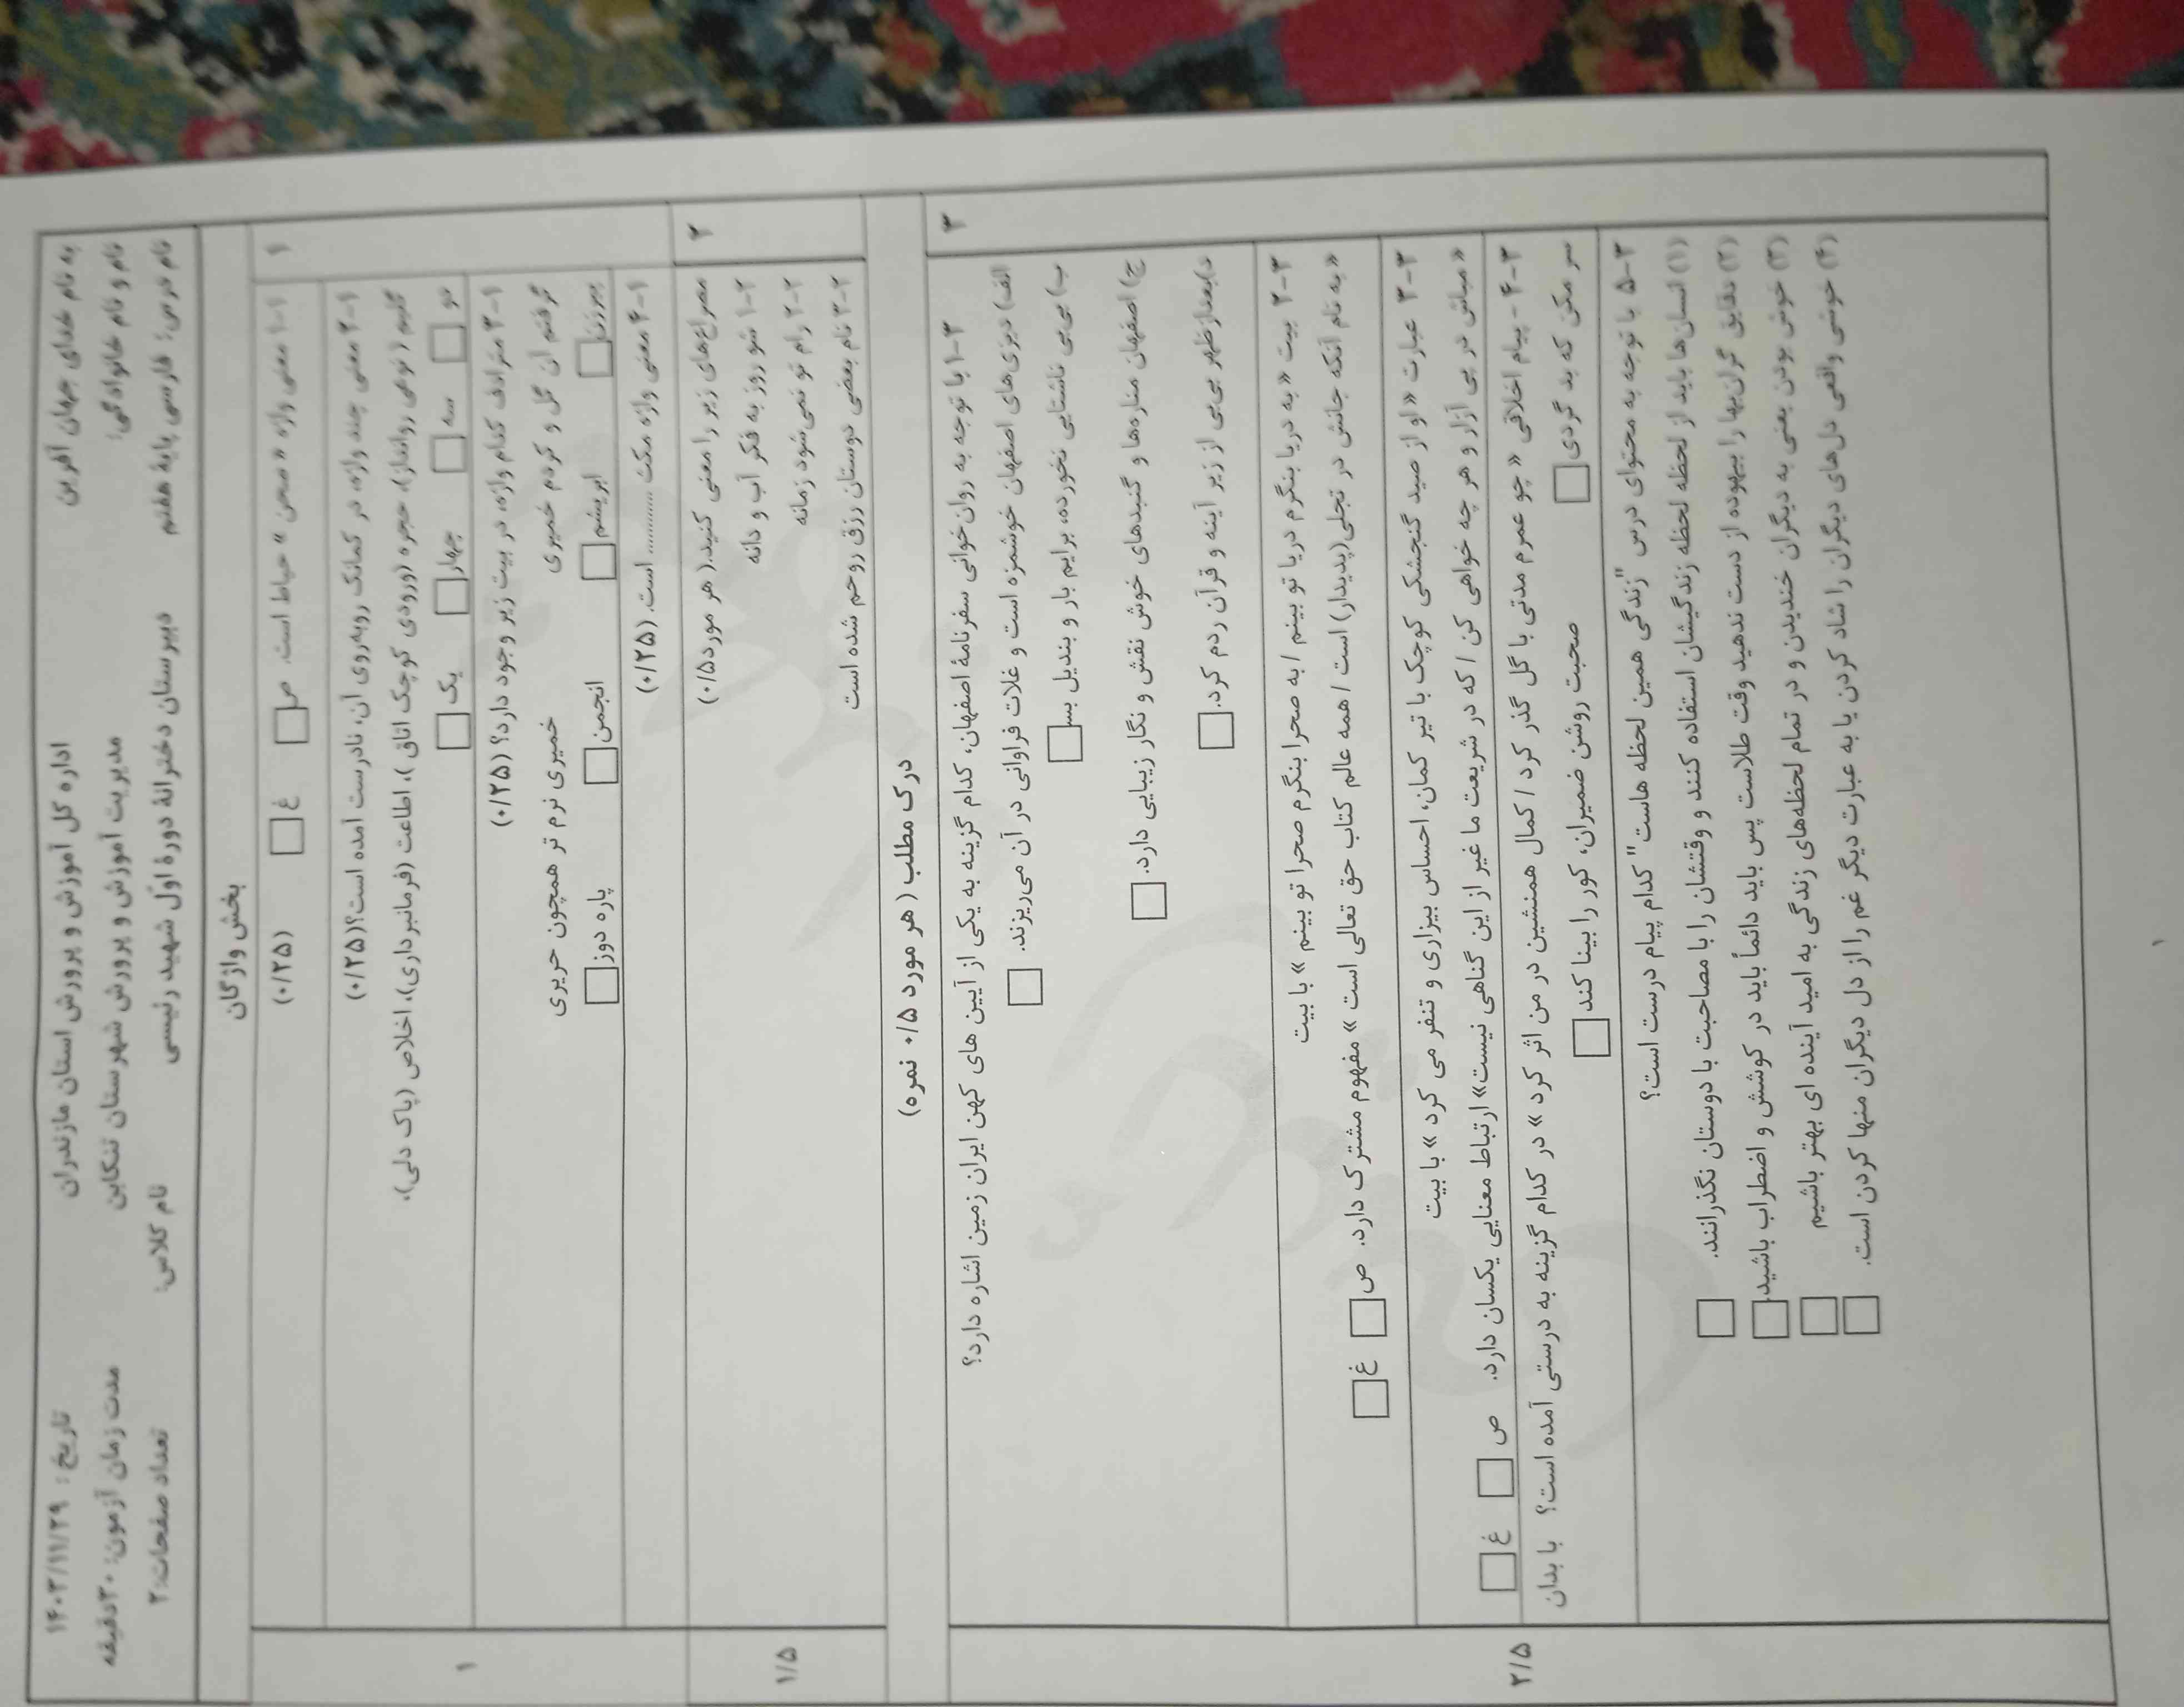 به نام خدای جهان آفرین اداره کل آموزش و پرورش استان مازندران تاریخ : ۱۴۰۳/۱۱/۲۹
نام و نام خانوادگی: مدیریت آموزش و پرورش شهرستان تنکابن مدت زمان آزمون: ۳۰دقیقه
نام درس: فارسی پایهٔ هفتم دبیرستان دخترانهٔ دورهٔ اوّل شهید رئیسی نام کلاس: تعداد صفحات:۲
بخش واژگان
۱
۱-۱ معنی واژه « صحن » حیاط است. ص غ (۰/۲۵)
۲-۱ معنی چند واژه، در کمانک روبه‌روی آن، نادرست آمده است؟(۰/۲۵)
گلیم (نوعی روانداز)، حجره (ورودی کوچک اتاق )، اطاعت (فرمانبرداری)، اخلاص (پاک دلی)،
دو سه چهار یک
۳-۱ مترادف کدام واژه، در بیت زیر وجود دارد؟ (۰/۲۵)
گرفتم آن گل و کردم خمیری خمیری نرم تر همچون حریری
پیرزن ابریشم انجمن پاره دوز
۴-۱ معنی واژه مکث ........... است. (۰/۲۵)
۱
۲
مصراع‌های زیر را معنی کنید.( هر مورد۰/۵)
۱-۲ شو روز به فکر آب و دانه
۲-۲ رام تو نمی‌شود زمانه
۳-۲ نام بعضی دوستان رزق روحم شده است
۱/۵
درک مطلب ( هر مورد ۰/۵ نمره)
۳
۱-۳ با توجه به روان‌خوانی سفرنامهٔ اصفهان، کدام گزینه به یکی از آیین های کهن ایران زمین اشاره دارد؟
الف) دیزی‌های اصفهان خوشمزه است و غلات فراوانی در آن می‌ریزند.
ب) بی‌بی ناشتایی نخورده، برایم بار و بندیل بست
ج) اصفهان مناره‌ها و گنبدهای خوش نقش و نگار زیبایی دارد.
د)بعدازظهر بی‌بی از زیر آینه و قرآن ردم کرد.
۲-۳ بیت « به دریا بنگرم دریا تو بینم / به صحرا بنگرم صحرا تو بینم » با بیت
« به نام آنکه جانش در تجلی(پدیدار) است / همه عالم کتاب حق تعالی است » مفهوم مشترک دارد. ص غ
۳-۳ عبارت « او از صید گنجشکی کوچک با تیر کمان، احساس بیزاری و تنفر می کرد » با بیت
« مباش در پی آزار و هر چه خواهی کن / که در شریعت ما غیر از این گناهی نیست» ارتباط معنایی یکسان دارد. ص غ
۴-۳- پیام اخلاقی « چو عمرم مدتی با گل گذر کرد / کمال همنشین در من اثر کرد » در کدام گزینه به درستی آمده است؟ با بدان
سر مکن که بد گردی صحبت روشن ضمیران، کور را بینا کند
۵-۳ با توجه به محتوای درس "زندگی همین لحظه هاست" کدام پیام درست است؟
(۱) انسان‌ها باید از لحظه لحظه زندگیشان استفاده کنند و وقتشان را با مصاحبت با دوستان نگذرانند.
(۲) دقایق گران‌بها را بیهوده از دست ندهید وقت طلاست پس باید دائماً باید در کوشش و اضطراب باشید.
(۳) خوش بودن یعنی به دیگران خندیدن و در تمام لحظه‌های زندگی به امید آینده ای بهتر باشیم
(۴) خوشی واقعی دل‌های دیگران را شاد کردن یا به عبارت دیگر غم را از دل دیگران منها کردن است.
۲/۵
۱